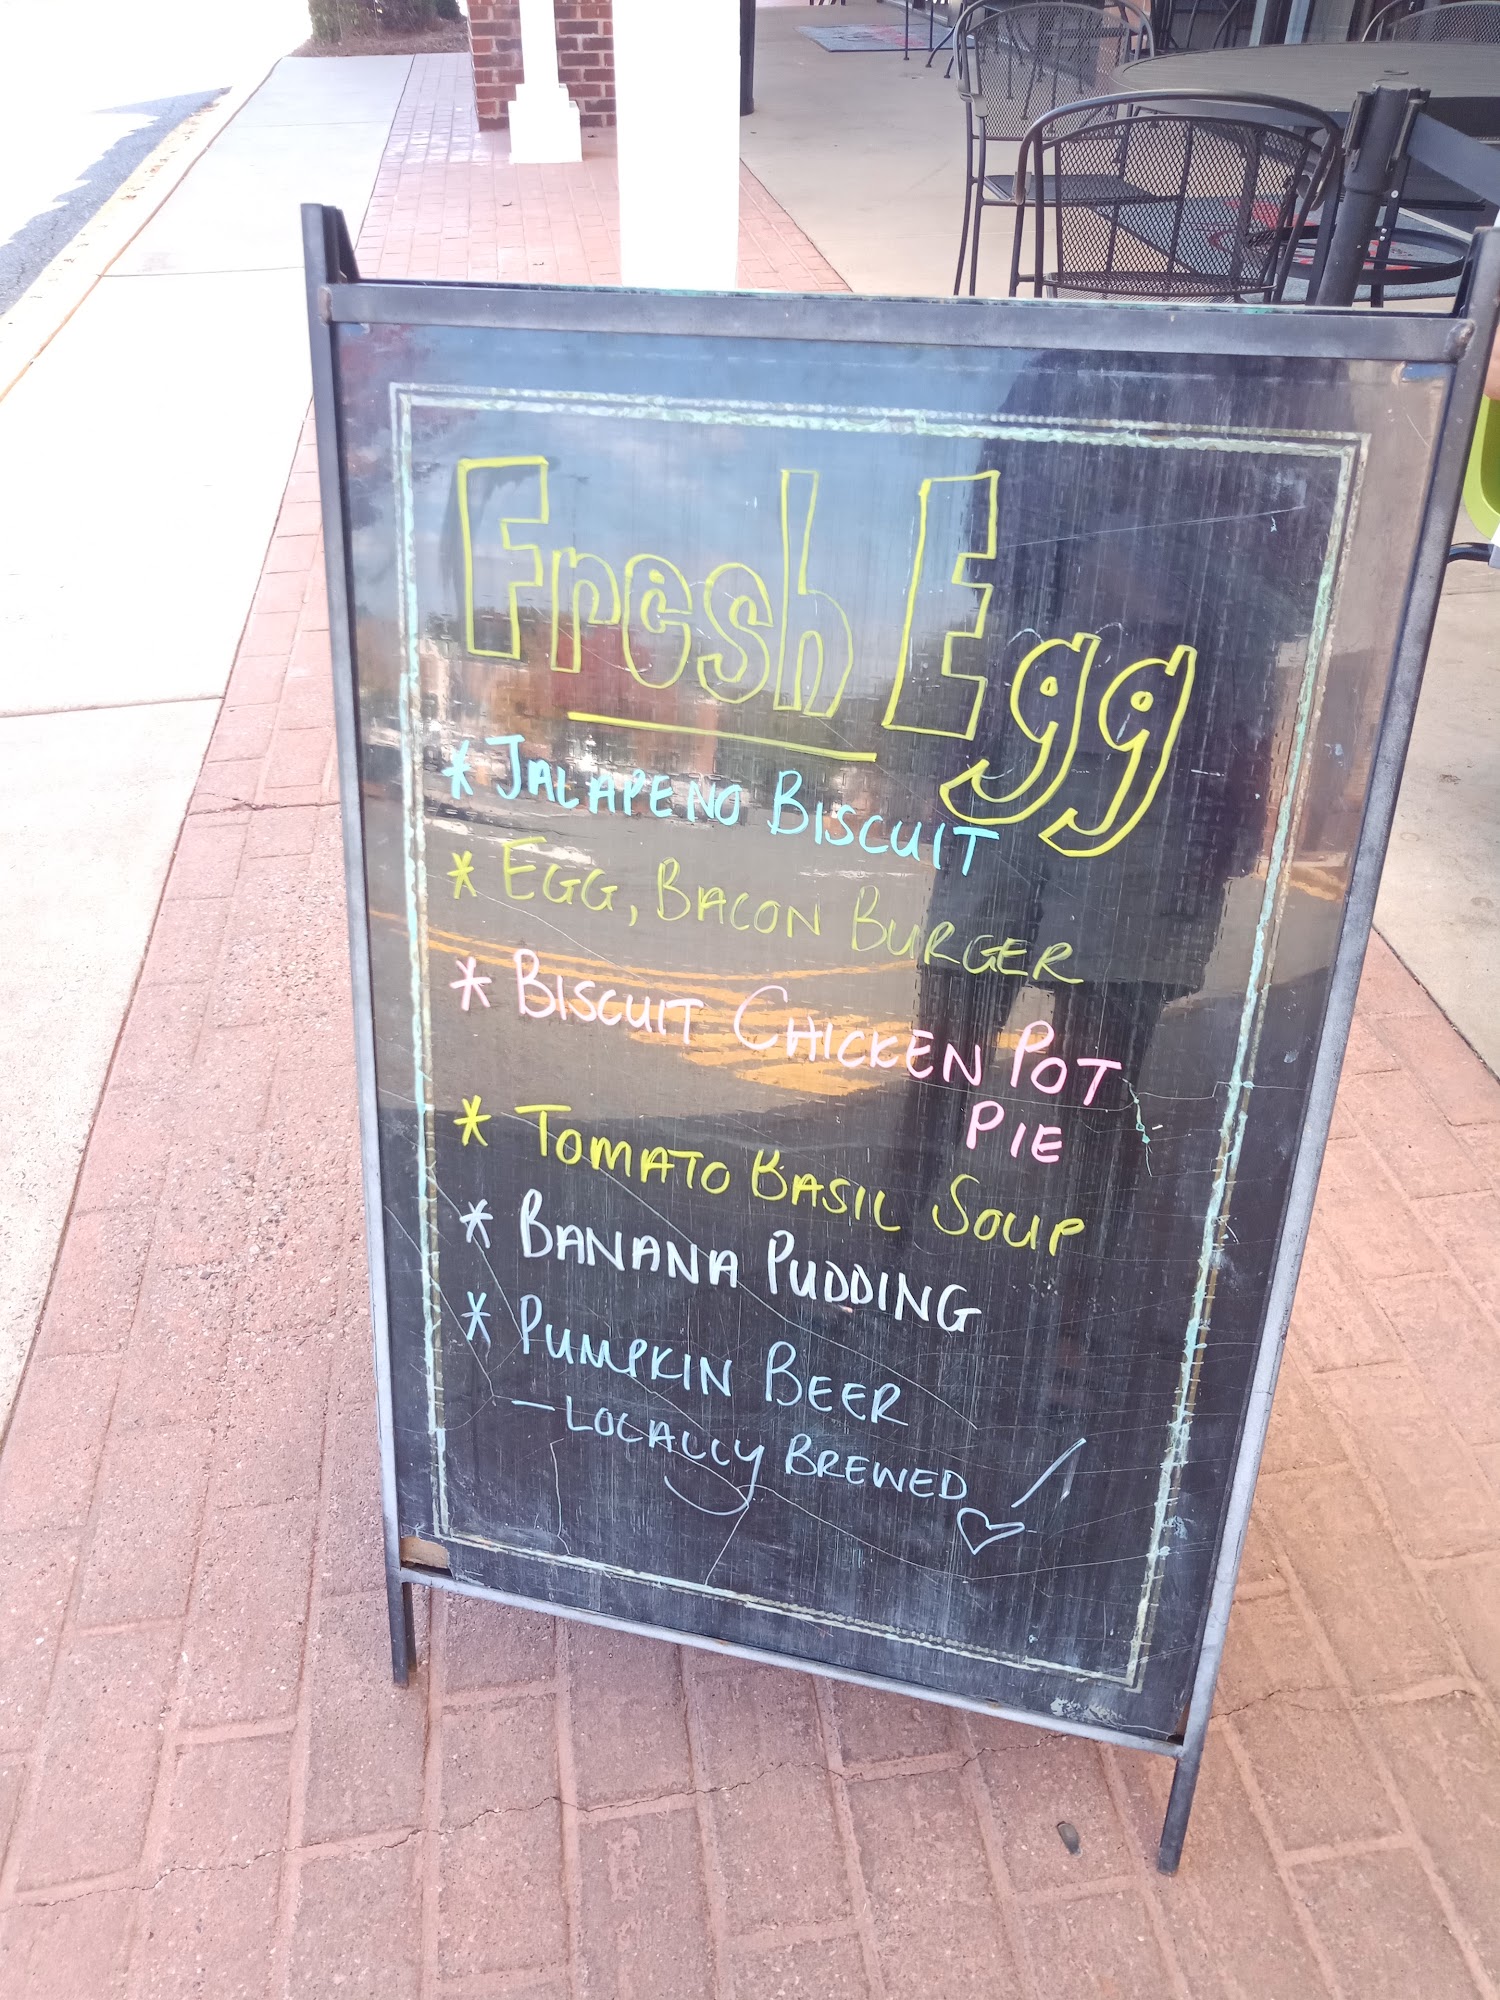 Fresh Egg
* JALAPENO BISCUIT
* EGG, BACON BURGER
* BISCUIT CHICKEN POT
PIE
* TOMATO BASIL SOUP
* BANANA PUDDING
* PUMPKIN BEER
- LOCALLY BREWED